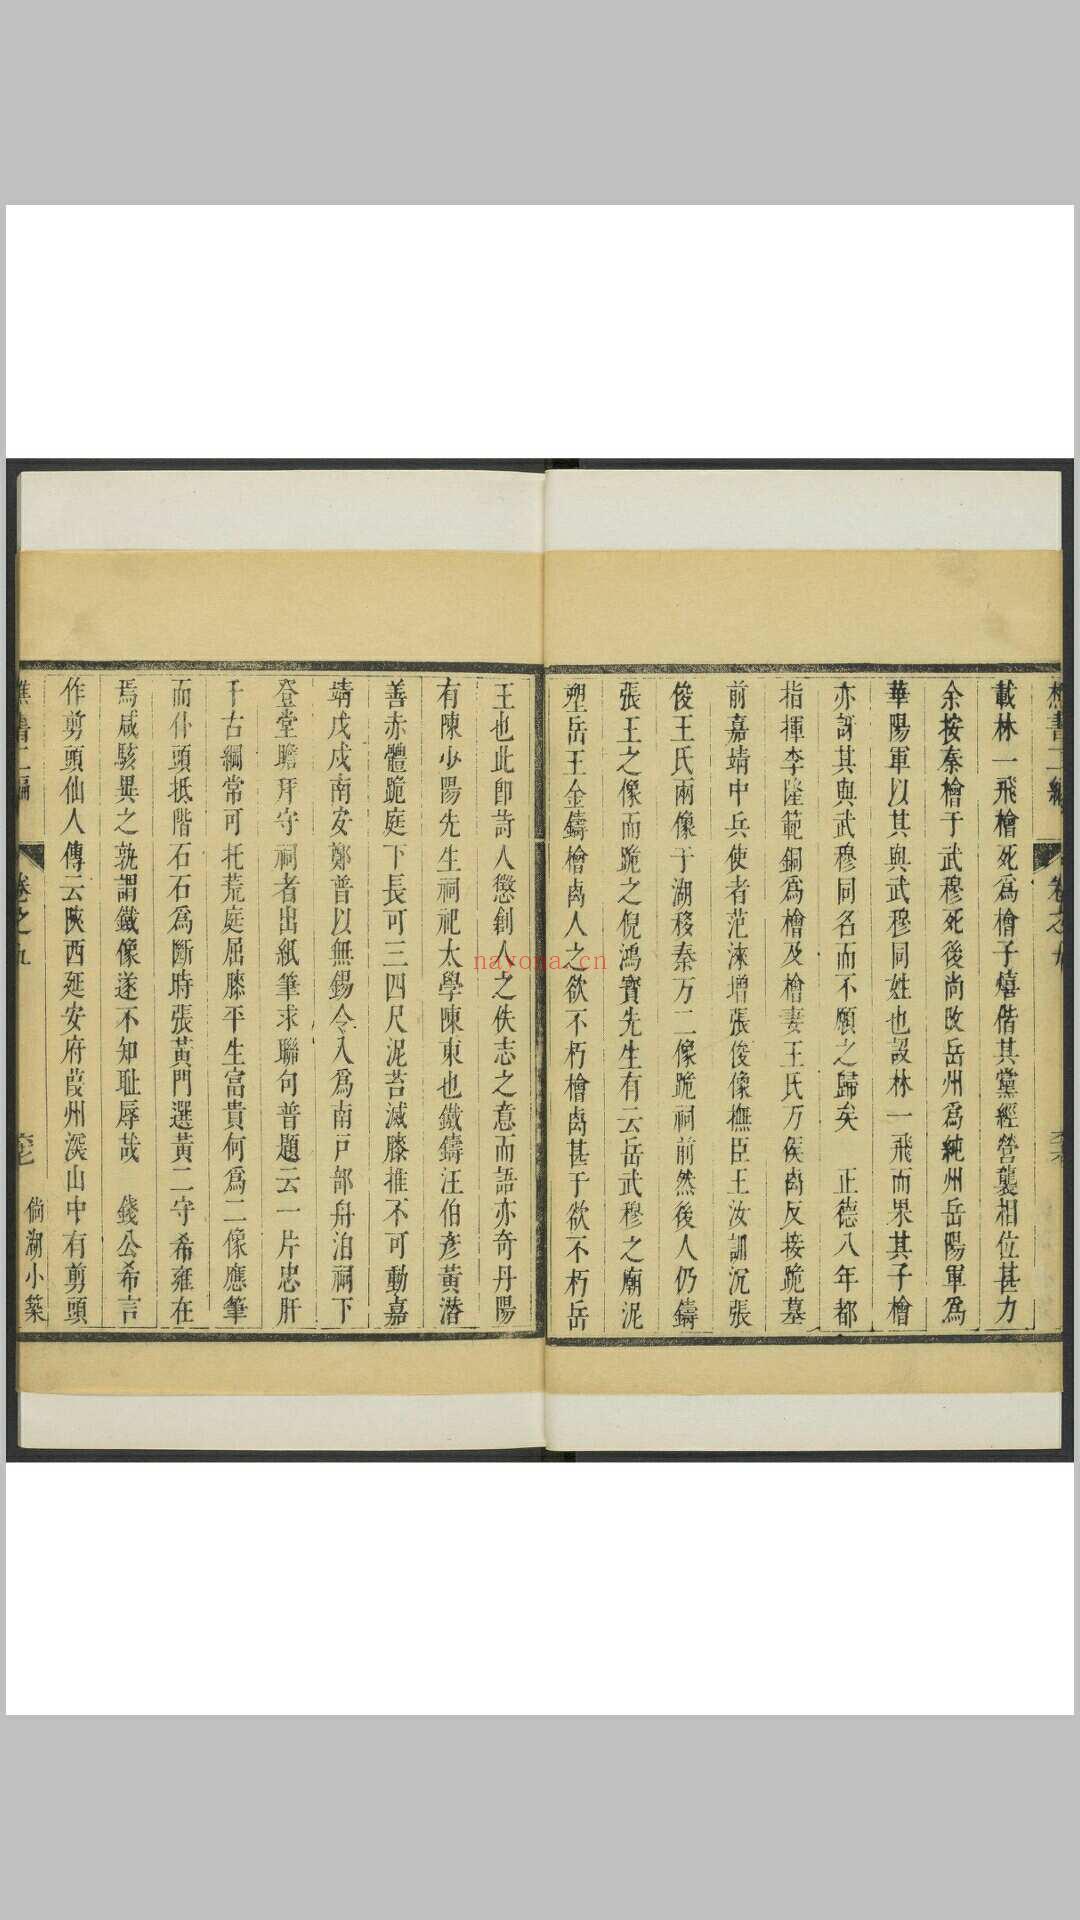 載林一飛檜死爲檜子熺偕其黨經營襲相位甚力
余按秦檜于武穆死後尚改岳州爲純州岳陽軍爲
華陽軍以其與武穆同姓也設林一飛而果其子檜
亦訝其與武穆同名而不願之歸矣 正德八年都
指揮李隆範銅爲檜及檜妻王氏万俟卨反接跪墓
前嘉靖中兵使者范淶增張俊像撫臣王汝訓沉張
俊王氏兩像于湖移秦万二像跪祠前然後人仍鑄
張王之像而跪之倪鴻寳先生有云岳武穆之廟泥
塑岳王金鑄檜卨人之欲不朽檜卨甚于欲不朽岳
王也此卽詩人懲創人之佚志之意而語亦奇丹陽
有陳少陽先生祠祀太學陳東也鐵鑄汪伯彥黃潛
善赤體跪庭下長可三四尺泥苔滅膝推不可動嘉
靖戊戌南安鄭普以無錫令入爲南戸部舟泊祠下
登堂瞻拜守祠者出紙筆求聯句普題云一片忠肝
千古綱常可托荒庭屈膝平生富貴何爲二像應筆
而仆頭抵階石石爲斷時張黃門選黃二守希雍在
焉咸駭異之孰謂鐵像遂不知耻辱哉 錢公希言
作剪頭仙人傳云陝西延安府葭州深山中有剪頭
卷之九
倘湖小築
nayona.cn